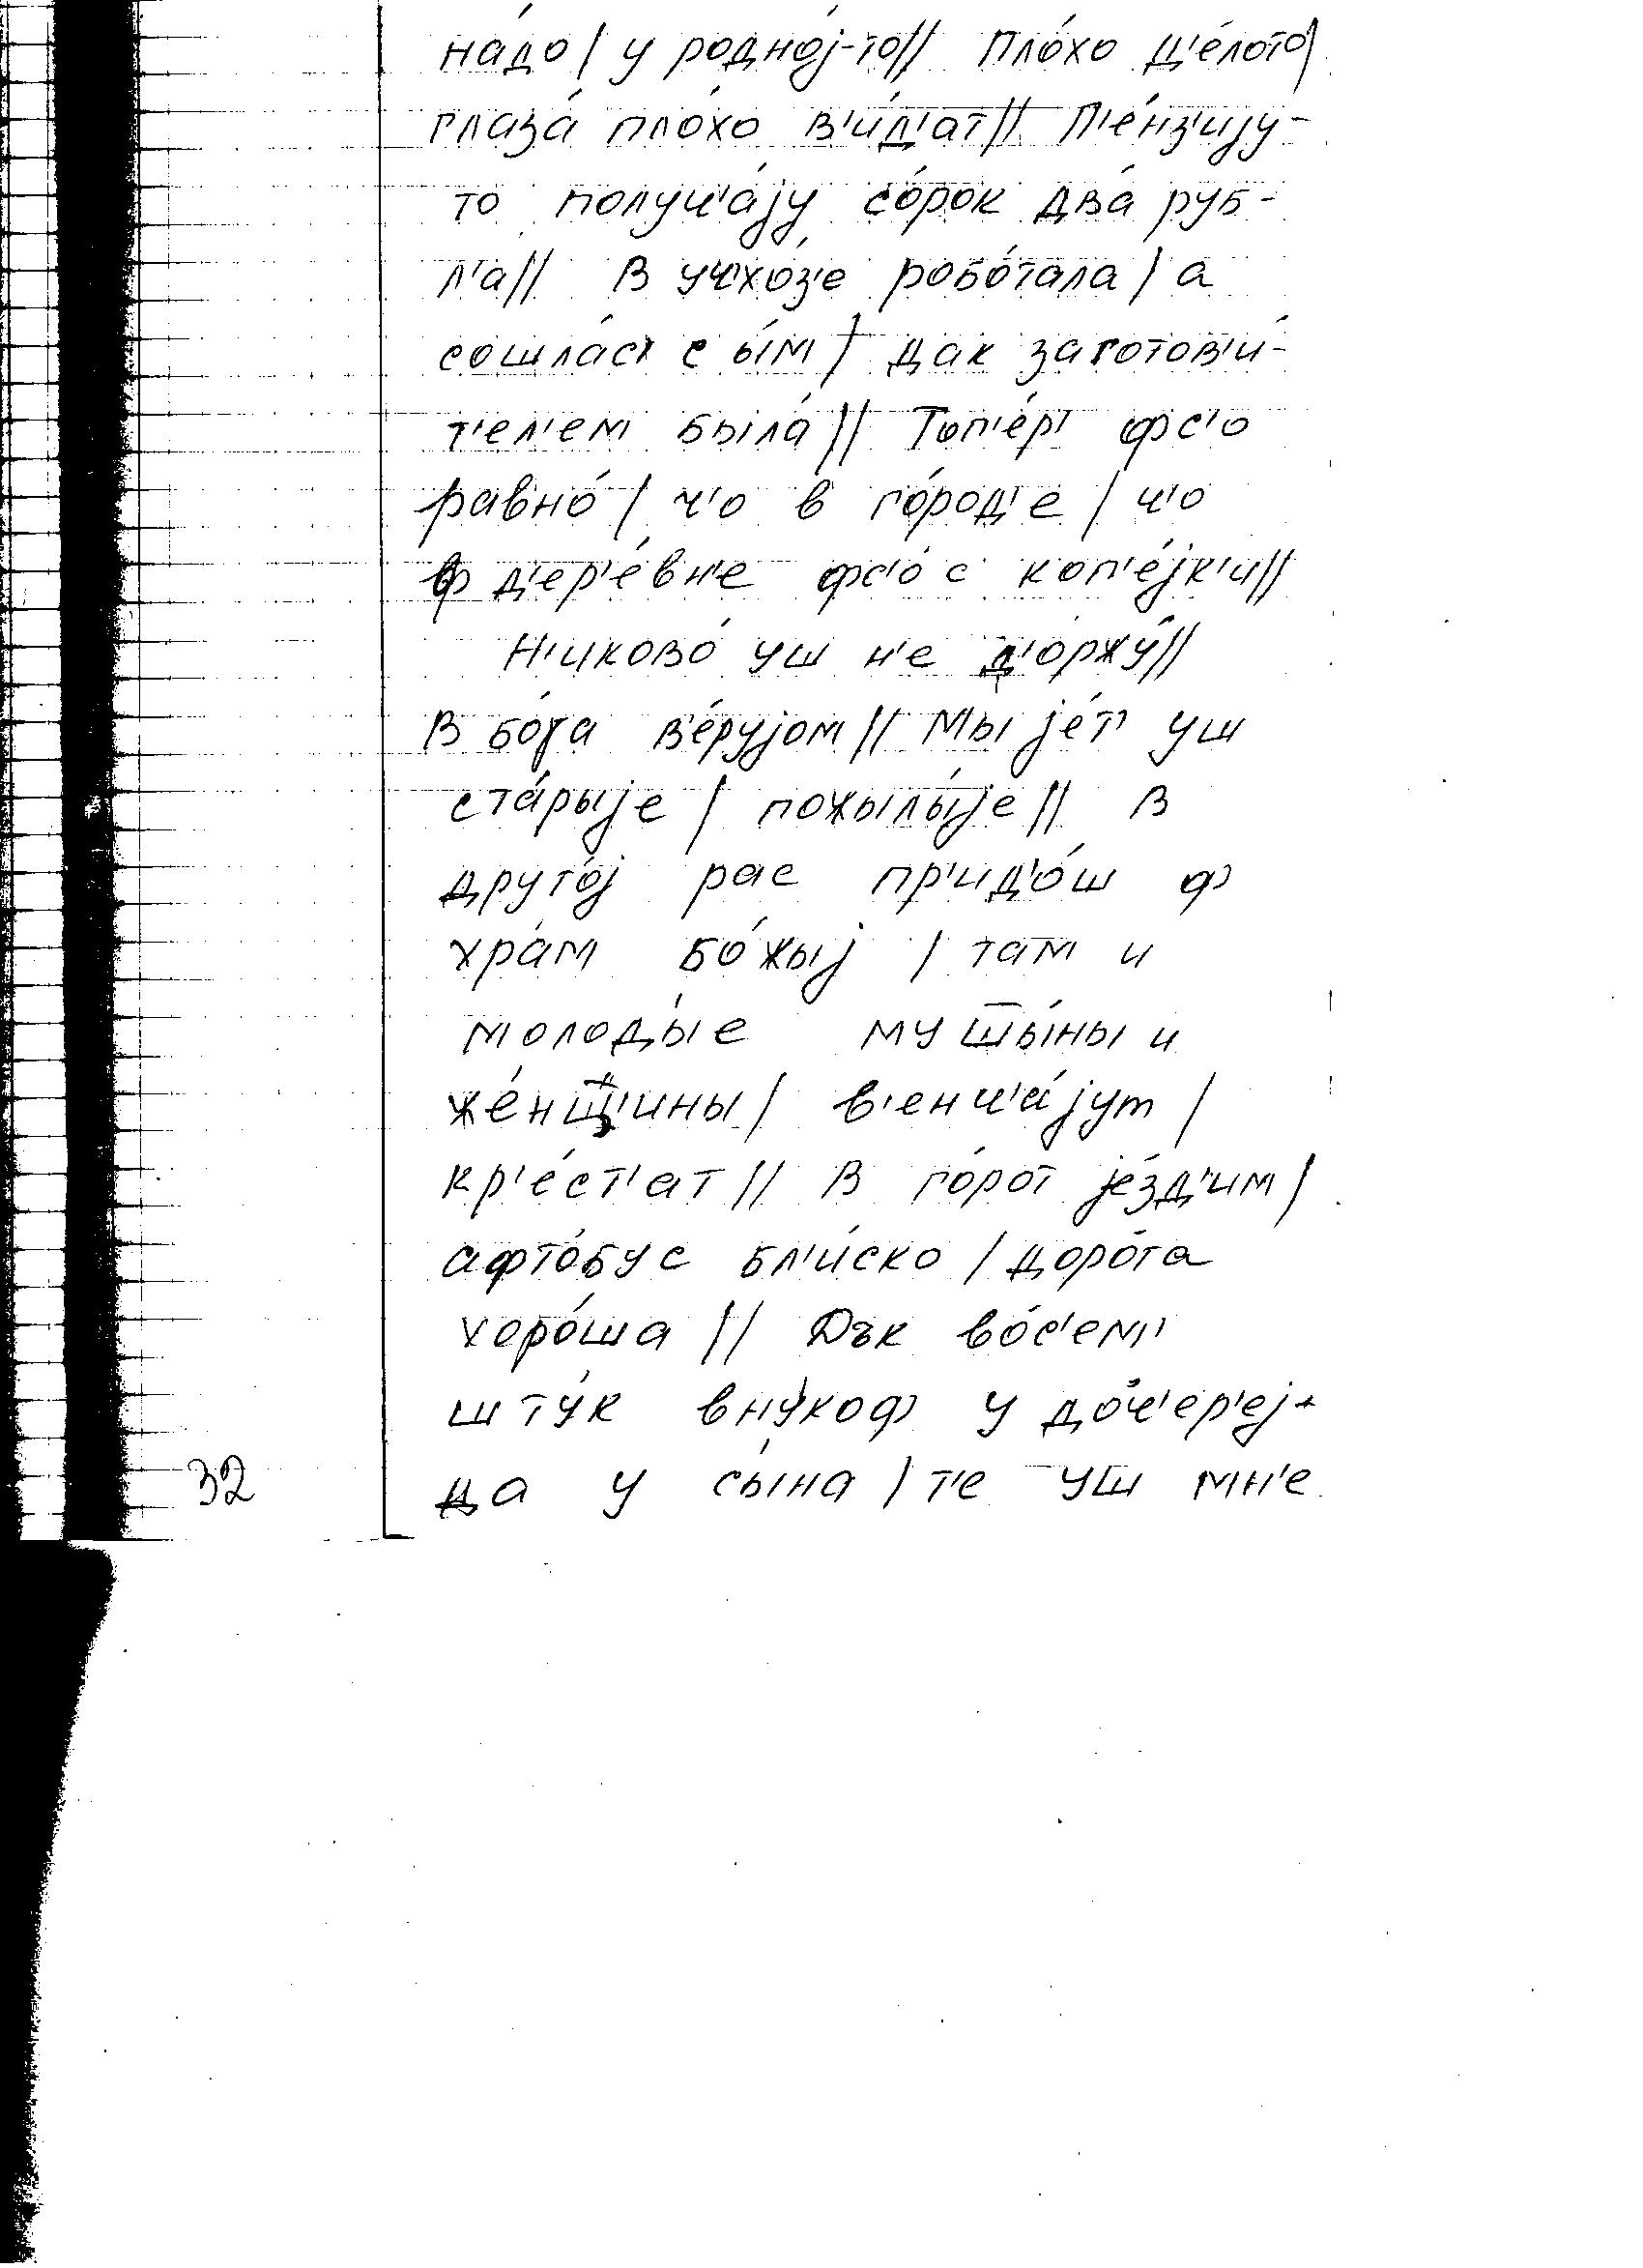 на́до / у родно́j-то // Пло́хо д'е́лото /
глаза́ пло́хо в'и́д'ат // П'е́нз'иjу-
то получ'а́jу со́рок два́ руб-
л'а // В учхо́з'е робо́тала / а
сошла́с' с ы́м / дак заготов'и́-
т'ел'ем была́ // Топ'е́р' фс'о
равно́ / ч'о в го́род'е / ч'о
ф д'ер'е́вн'е фс'о́ с коп'е́jк'и //
Н'иково́ уш н'е д'оржу́ //
В бо́γа в'е́руjом // Мы jе́т' уш
ста́рыjе / пожылы́jе // В
друго́j рас пр'ид'о́ш ф
хра́м бо́жыj / там и
молоды́е мушы́ны и
же́нщ'ины / в'енч'а́jут /
кр'е́ст'ат // В го́рот jе́зд'им /
афто́бус бл'и́ско / доро́га
хоро́ша // Дък во́с'ем'
шту́к вну́коф у доч'ер'е́j-
да у сы́на / т'е уш мн'е
32